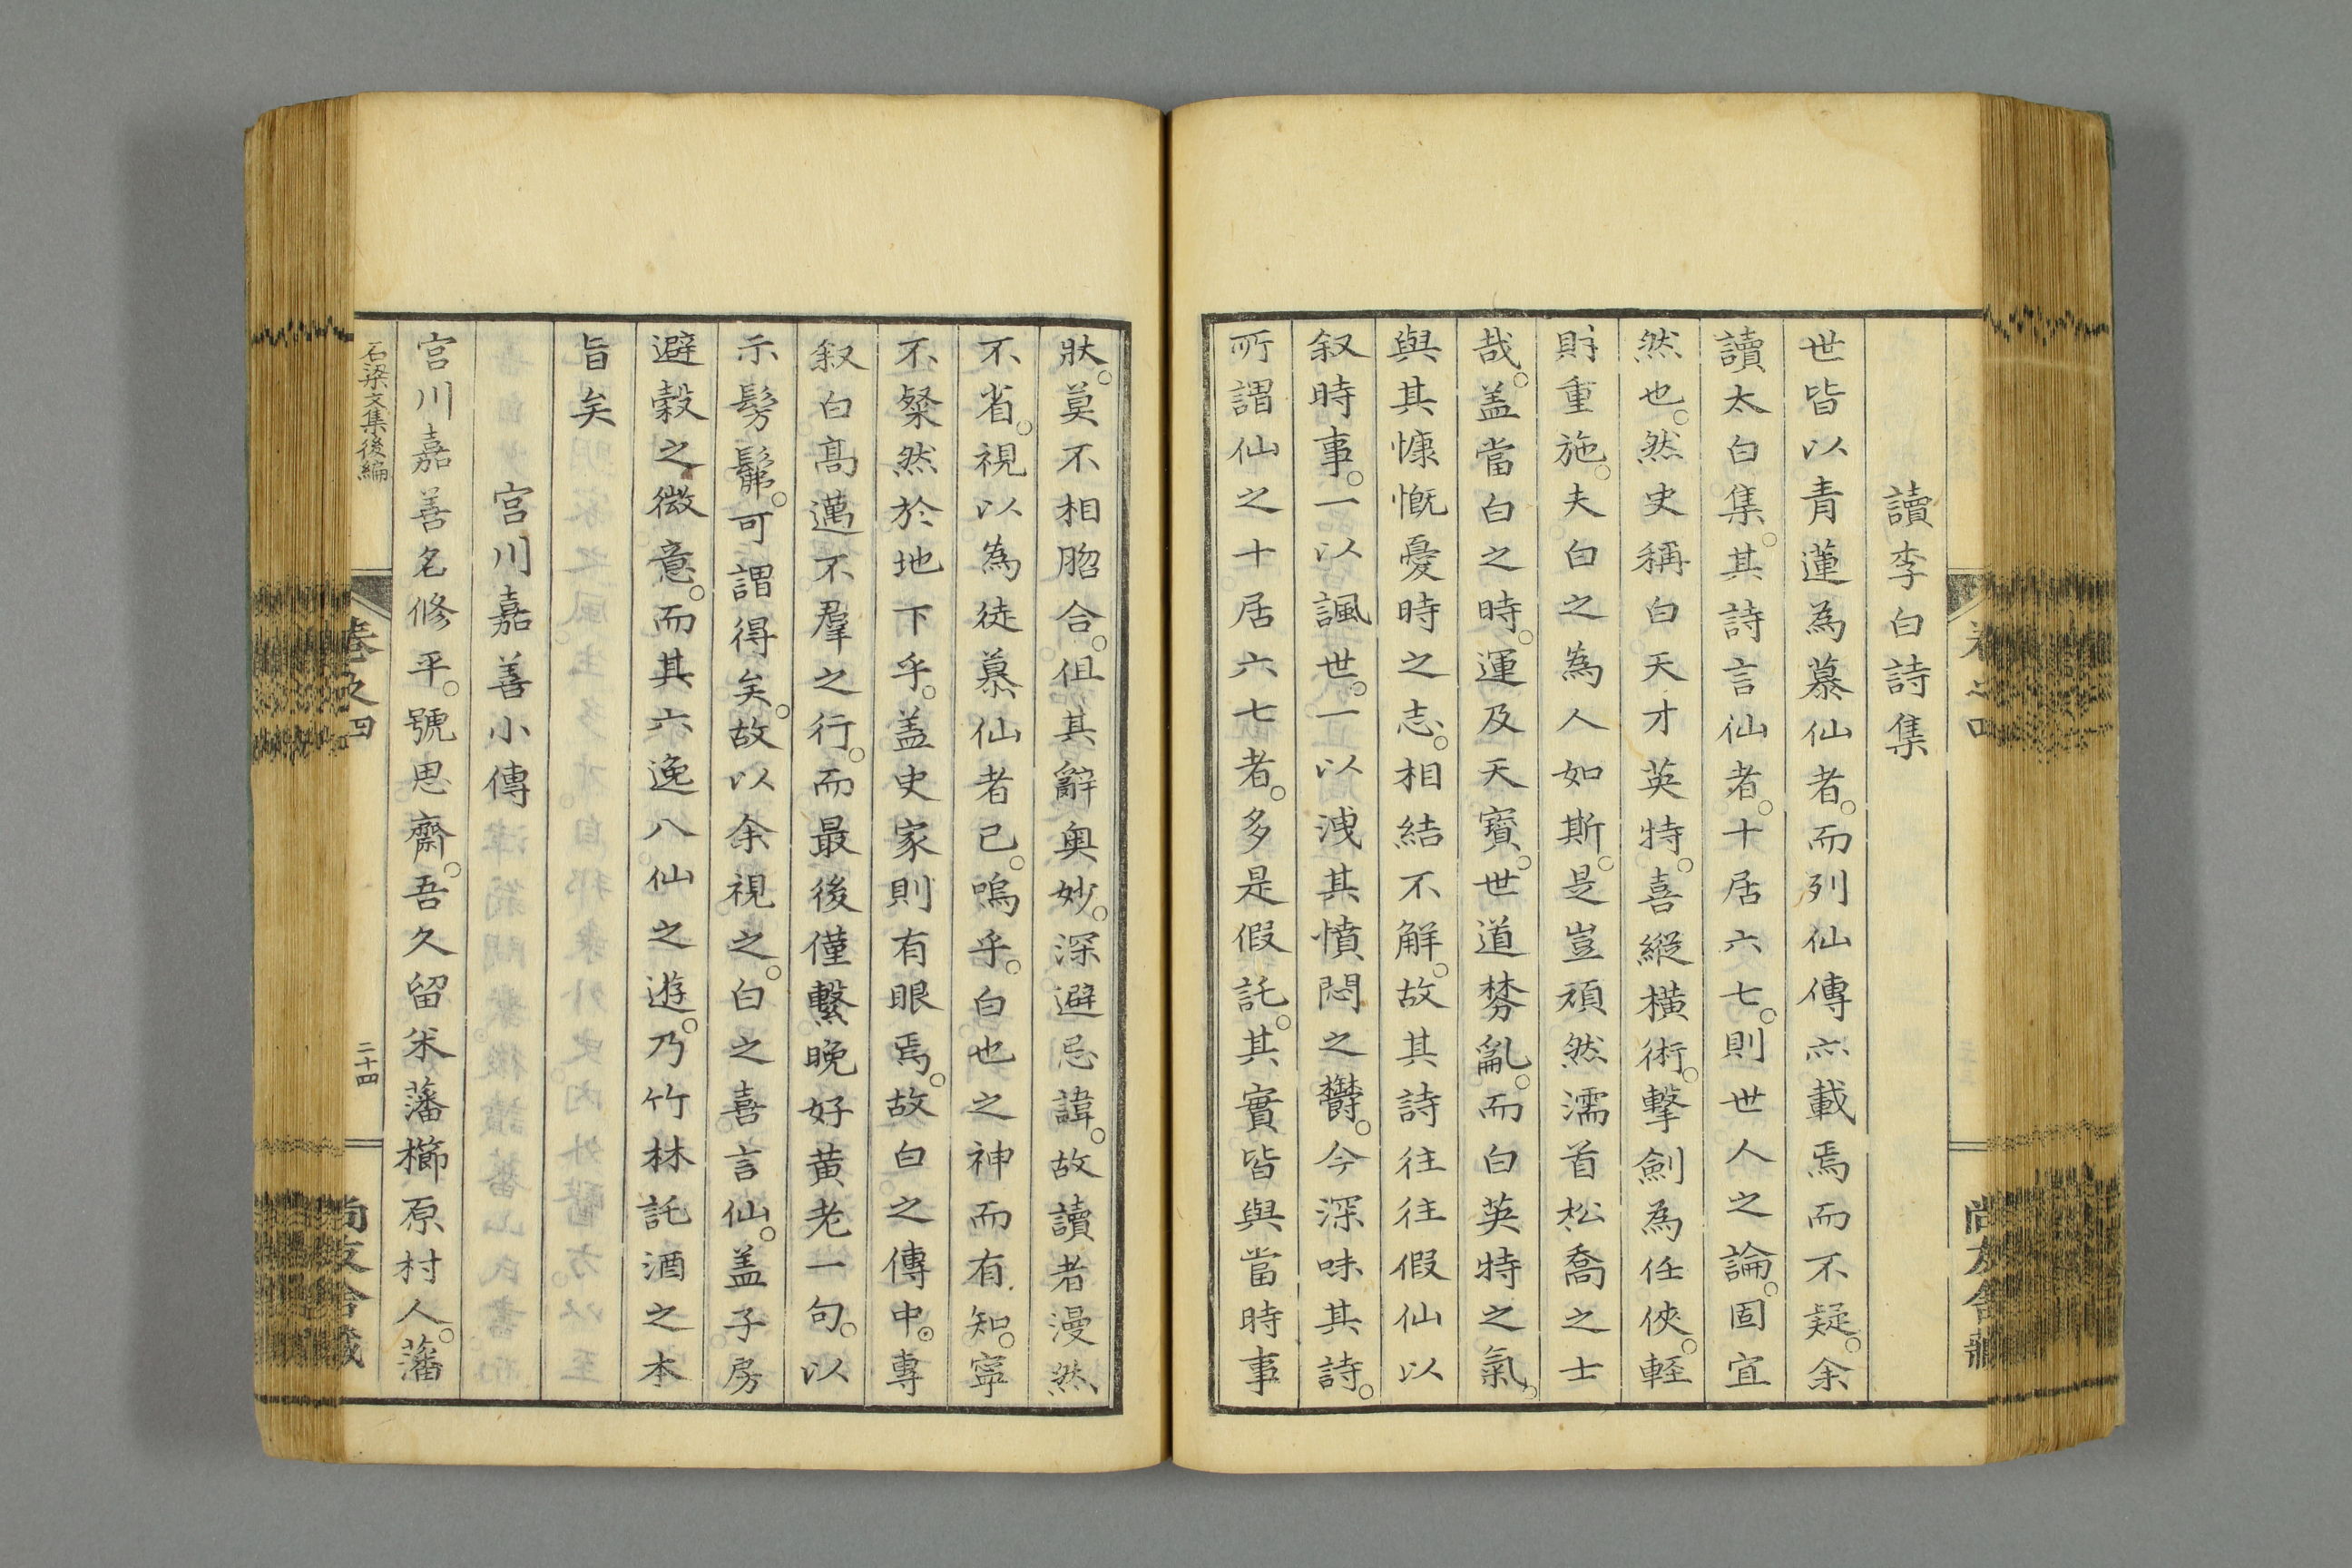 讀李白詩集
世皆以青蓮為慕仙者。而列仙傳亦載焉而不疑。余
讀太白集。其詩言仙者。十居六七。則世人之論。固宜
然也。然史稱白天才英特。喜縱橫術。擊劍為任俠。輕
財重施。夫白之為人如斯。是豈頑然濡首松喬之士
哉。盖當白之時。運及天寶。世道棼亂。而白英特之氣。
與其慷慨憂時之志。相結不解。故其詩往往假仙以
叙時事。一以諷世。一以洩其憤悶之欝。今深味其詩。
所謂仙之十居六七者。多是假託。其實皆與當時事
狀。莫不相脗合。但其辭奥妙。深避忌諱。故讀者漫然
不省。視以為徒慕仙者已。嗚乎。白也之神而有知。寧
不粲然於地下乎。盖史家則有眼焉。故白之傳中。專
叙白高邁不羣之行。而最後僅繫晚好黄老一句。以
示髣髴。可謂得矣。故以余視之。白之喜言仙。盖子房
避穀之微意。而其六逸八仙之遊。乃竹林託酒之本
旨矣
宮川嘉善小傳
宮川嘉善名修平。號思齋。吾久留米藩櫛原村人。藩
石梁文集後編
卷之四
二十四
尚友舍藏